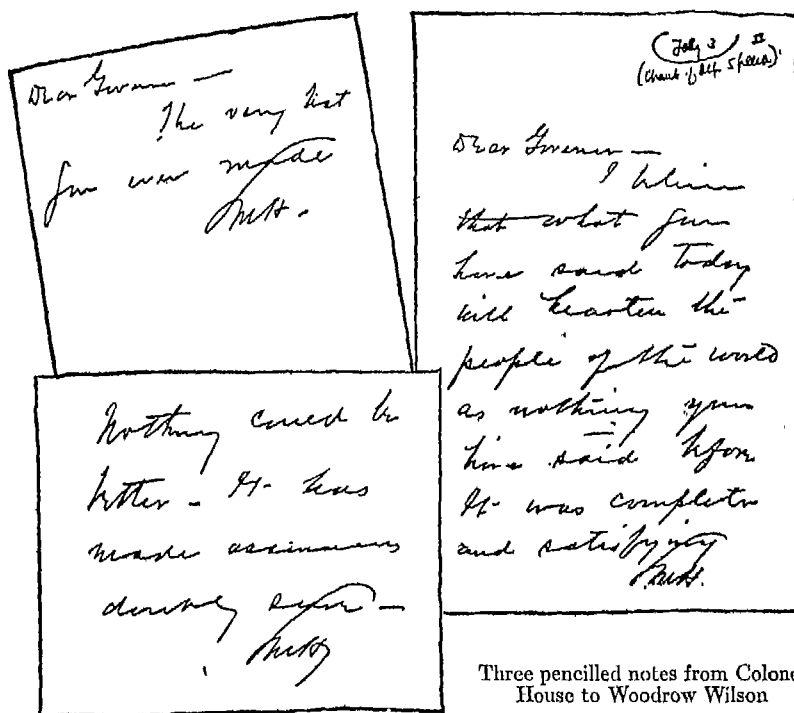 Dear Governor —
The very best
you ever made
EMH.
Nothing could be
better - It has
made assurances
doubly sure —
EMH
July 3
Dear Governor —
I believe
that what you
have said today
will hearten the
people of the world
as nothing you
have said before
It was complete
and satisfying
EMH.
Three pencilled notes from Colone
House to Woodrow Wilson